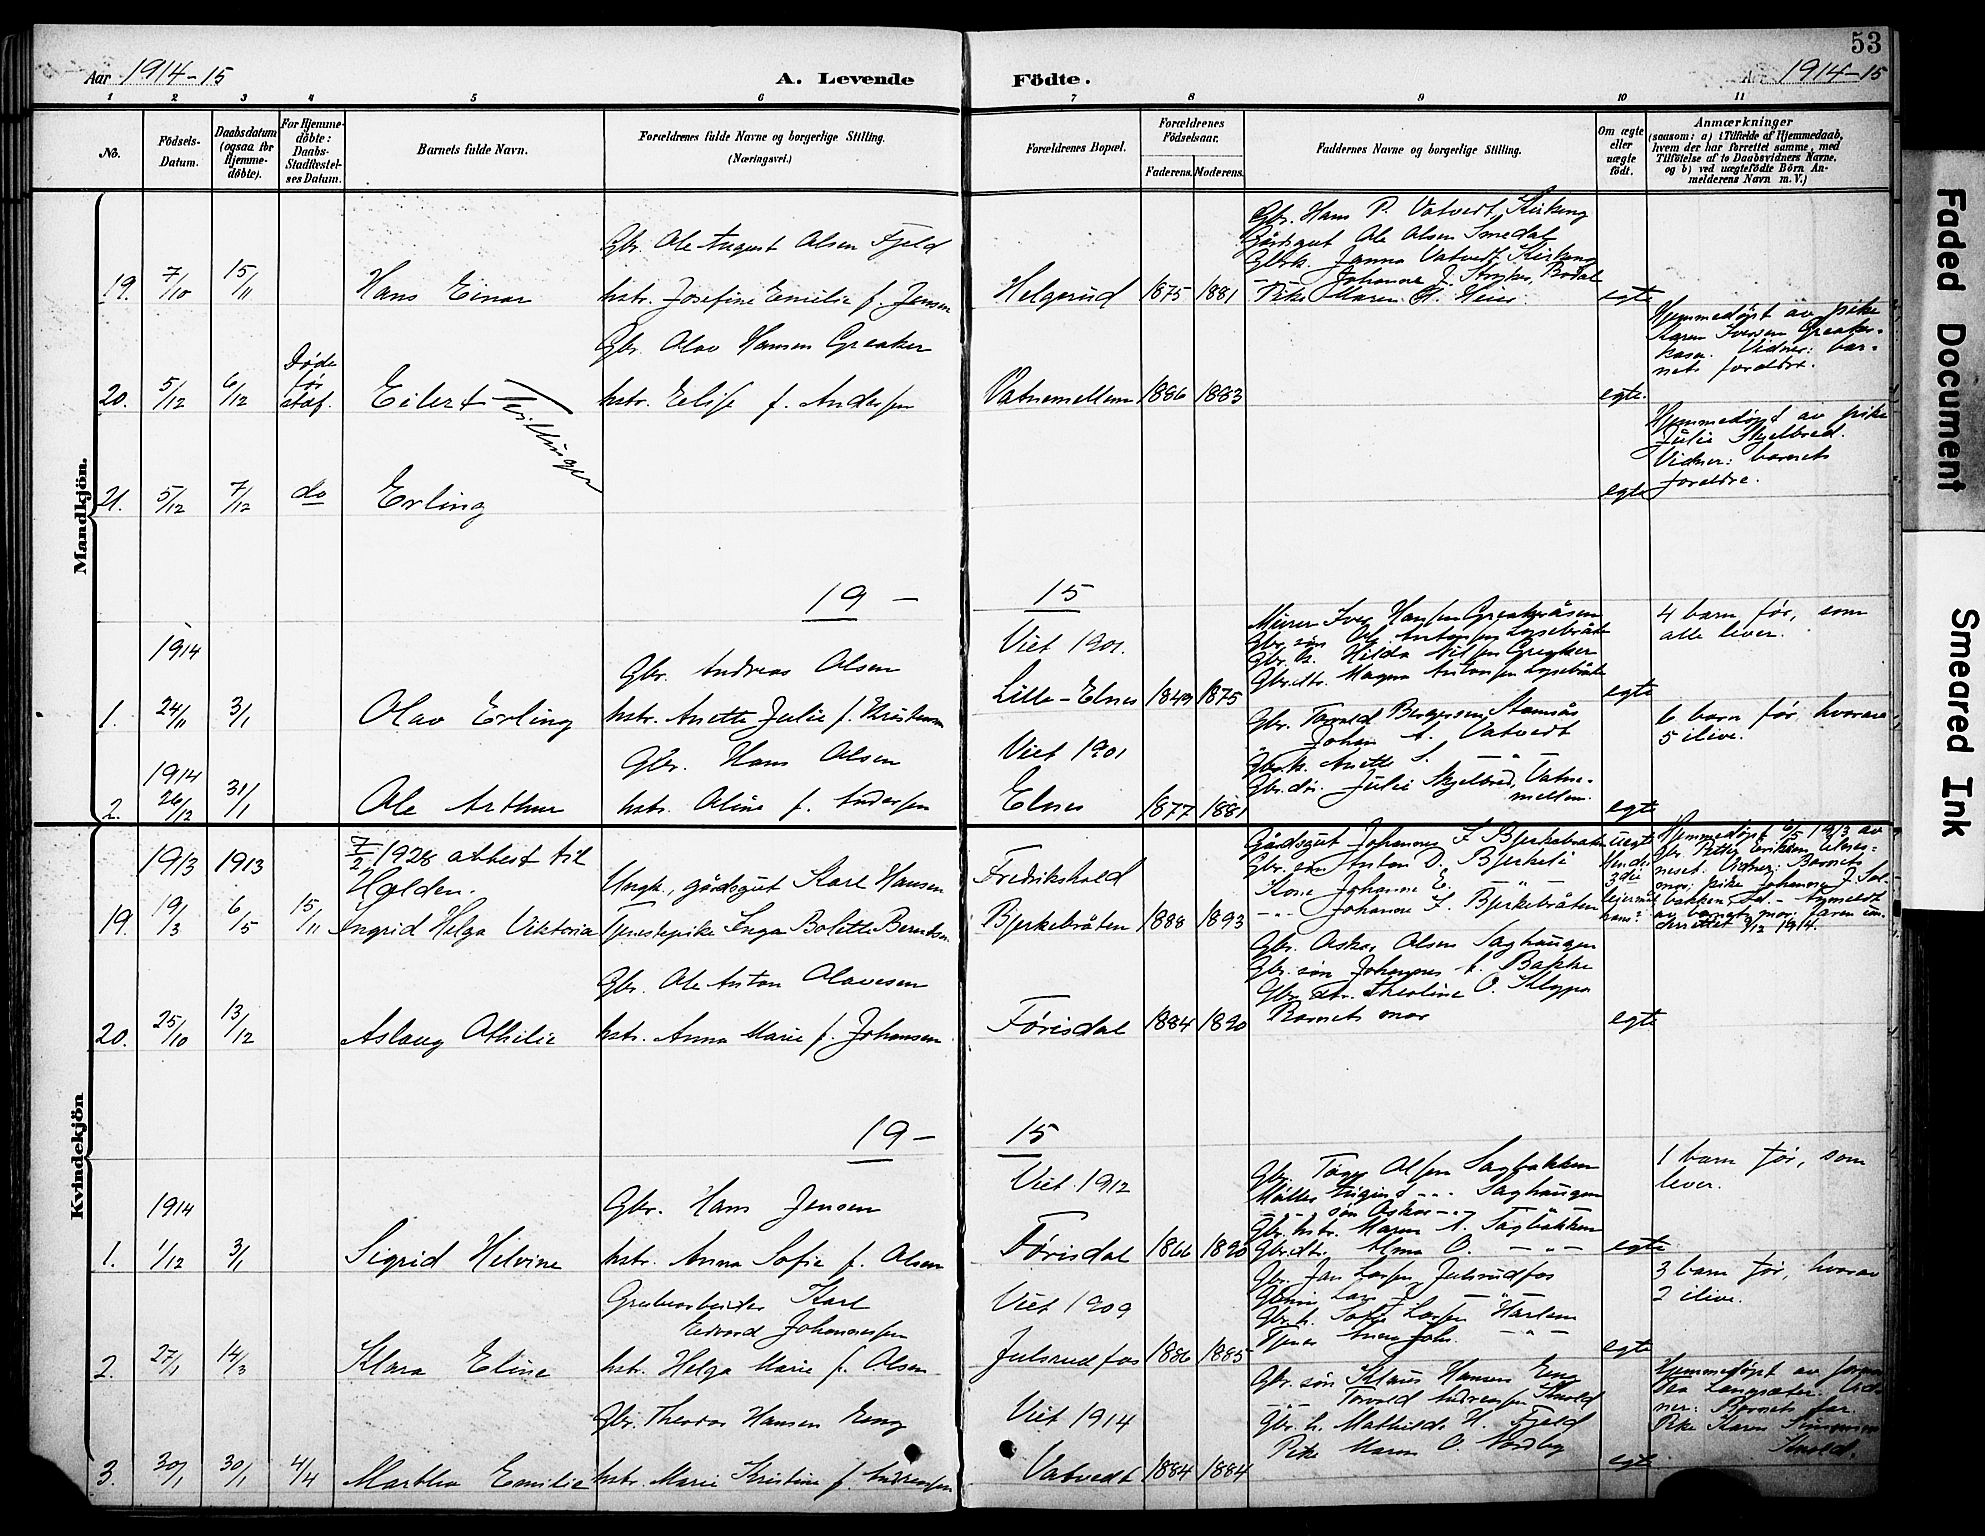 53
Aar 1914-15
A. Levende Födte.
1914-15
1 2 3 4 5 6 7 8 9 10 11
No.
Födsels-
Datum.
Daabsdatum
(ogsaa for
Hjemme-
döbte).
For Hjemme-
döbte:
Daabs-
Stadfæstel-
ses Datum.
Barnets fulde Navn.
Forældrenes fulde Navne og borgerlige Stilling.
(Næringsvei.)
Forældrenes Bopæl.
Forældrenes
Födselsaar.
Faderens. Moderens.
Faddernes Navne og borgerlige Stilling.
Om ægte
eller
uægte
födt.
Anmærkninger
(saasom: a) i Tilfælde af Hjemmedaab,
hvem der har forrettet samme, med
Tilföielse af to Daabsvidners Navne,
og b) ved uægtefödte Börn An-
melderens Navn m. V.)
Mandkjön.
19. 7/10 15/11 Hans Einar
Gbr. Ole August Olsen Fjeld
hstr. Josefine Emilie f. Jensen
Helgerud 1875 1881
Gbr. Hans P. Vatvedt, Kirkeng
Gårdsgut Ole Olsen Smedal
Gbrk. Janna Vatvedt Kirkeng
Pike Maren H. Heier
egte
20. 5/12 6/12
Døde
før
staf.
Eilert
Tvillinger
Gbr. Olav Hansen Greaker
hstr. Elise f. Andersen
Vatnemellem 1886 1883
egte.
Hjemmedøpt av pike
Karen Iversen Greaker-
åsen. Vidner: bar-
nets foreldre.
21. 5/12 7/12 do Erling
egte
Hjemmedøpt av pike
Julie Skjelbred.
Vidner: barnets
foreldre.
19 - 15
1914
1. 24/11 3/1 Olav Erling
Gbr. Andreas Olsen
hstr. Anette Julie f. Kristensen
Viet 1901.
Lille-Elnes 1849 1875
Murer Iver Hansen Greakeråsen
Gbr. søn Ole Antonsen Lysebråte
Gbr. k. Hilda Nilsen Greaker
Gbr.dtr. Magna Antonsen Lysebråte
egte
4 barn før, som
alle lever.
1914
2. 26/12 31/1 Ole Arthur
Gbr. Hans Olsen
hstr. Oline f. Andersen
Viet 1901
Elnes 1877 1881
Gbr. Torvald Bergersen Stamnås
Johan A. Vatvedt
Gbrk. Anette S. - " -
Gbr.dtr. Julie Skjelbred, Vatne-
mellem.
egte
6 barn før, hvorav
5 ilive.
Kvindekjön
1913 1913
7/2 1928 attest til
Halden.
19. 19/3 6/5 15/11 Ingrid Helga Viktoria
Ungk., gårdsgut Karl Hansen
Tjenestepike Inga Bolette Berntsen
Fredrikshald
Bjerkebråten 1888 1893
Gårdsgut Johannes F. Bjerkebråten
Gbr. søn Anton O. Bjerkeli
Kone Johanne E. - " -
- " - Johanne F. Bjerkebråten
uegte
Hendes
3die
leiermål
hans?
Hjemmedøpt 6/5 1913 av
Gbr. Petter Eriksen Elnes-
neset. Vidner: Barnets
mor; pike Johanne J. Sol-
bakken, - Anmeldt
av barnets mor; faren inn-
stevnet 9/12 1914.
20. 25/10 13/12 Aslaug Othilie
Gbr. Ole Anton Olavesen
hstr. Anna Marie f. Johansen
Førisdal 1884 1890
Gbr. Oskar Olsen Saghaugen
Gbr. søn Johannes A. Bakke
Gbr. dtr. Theoline O. Kleppa
Barnets mor
egte
19 - 15
1914
1. 1/12 3/1 Sigrid Helvine
Gbr. Hans Jensen
hstr. Anna Sofie f. Olsen
Viet 1912
Førisdal 1866 1890
Gbr. Olsen Sagbakken
Møller August - " - Saghaugen
- " - søn Oskar - " -
Gbr. hstr. Maren A. Sagbakken
Gbr.dtr. Alma O. - " -
egte
1 barn før, som
lever.
2. 27/1 14/3 Klara Eline
Grubearbeider Karl
Edvard Johannessen
hstr. Helga Marie f. Olsen
Viet 1909
Julsrudfos 1886 1885
Gbr. Jan Larsen, Julsrudfos
Gbr. h. Sofie Larsen Harlem
egte
3 barn før, hvorav
2 ilive.
3. 30/1 30/1 4/4 Martha Emilie
Gbr. Theodor Hansen Eng
hstr. Marie Kristine f. Andreasen
Viet 1914
Vatvedt 1884 1884
Gbr. søn Klaus Hansen Eng
- " - Torvald Andreasen Knold
Gbr. h. Mathilde H. Fjeld
Pike Maren O. Nordby
egte
Hjemmedøpt av jorm.
Tea Langsæter. Vid-
ner: Barnets far.
Pike Karen
Knold.
Faded Document
Smeared Ink